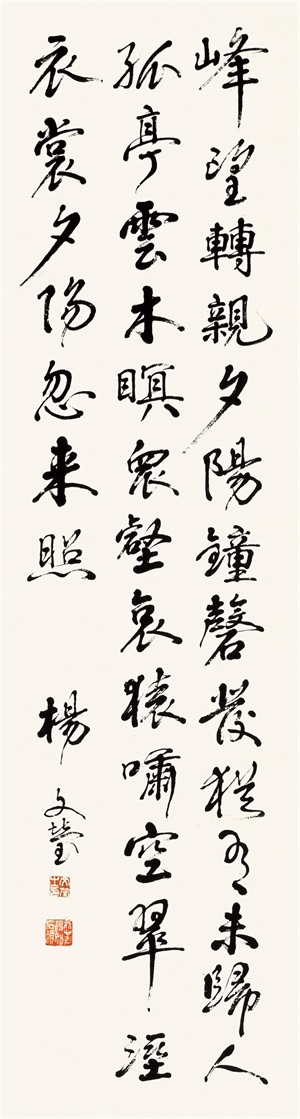 峰望轉親夕陽鐘磬發猶有未歸人
孤亭雲木瞑眾壑哀猿嘯空翠溼
衣裳夕陽忽来照
楊文瑩